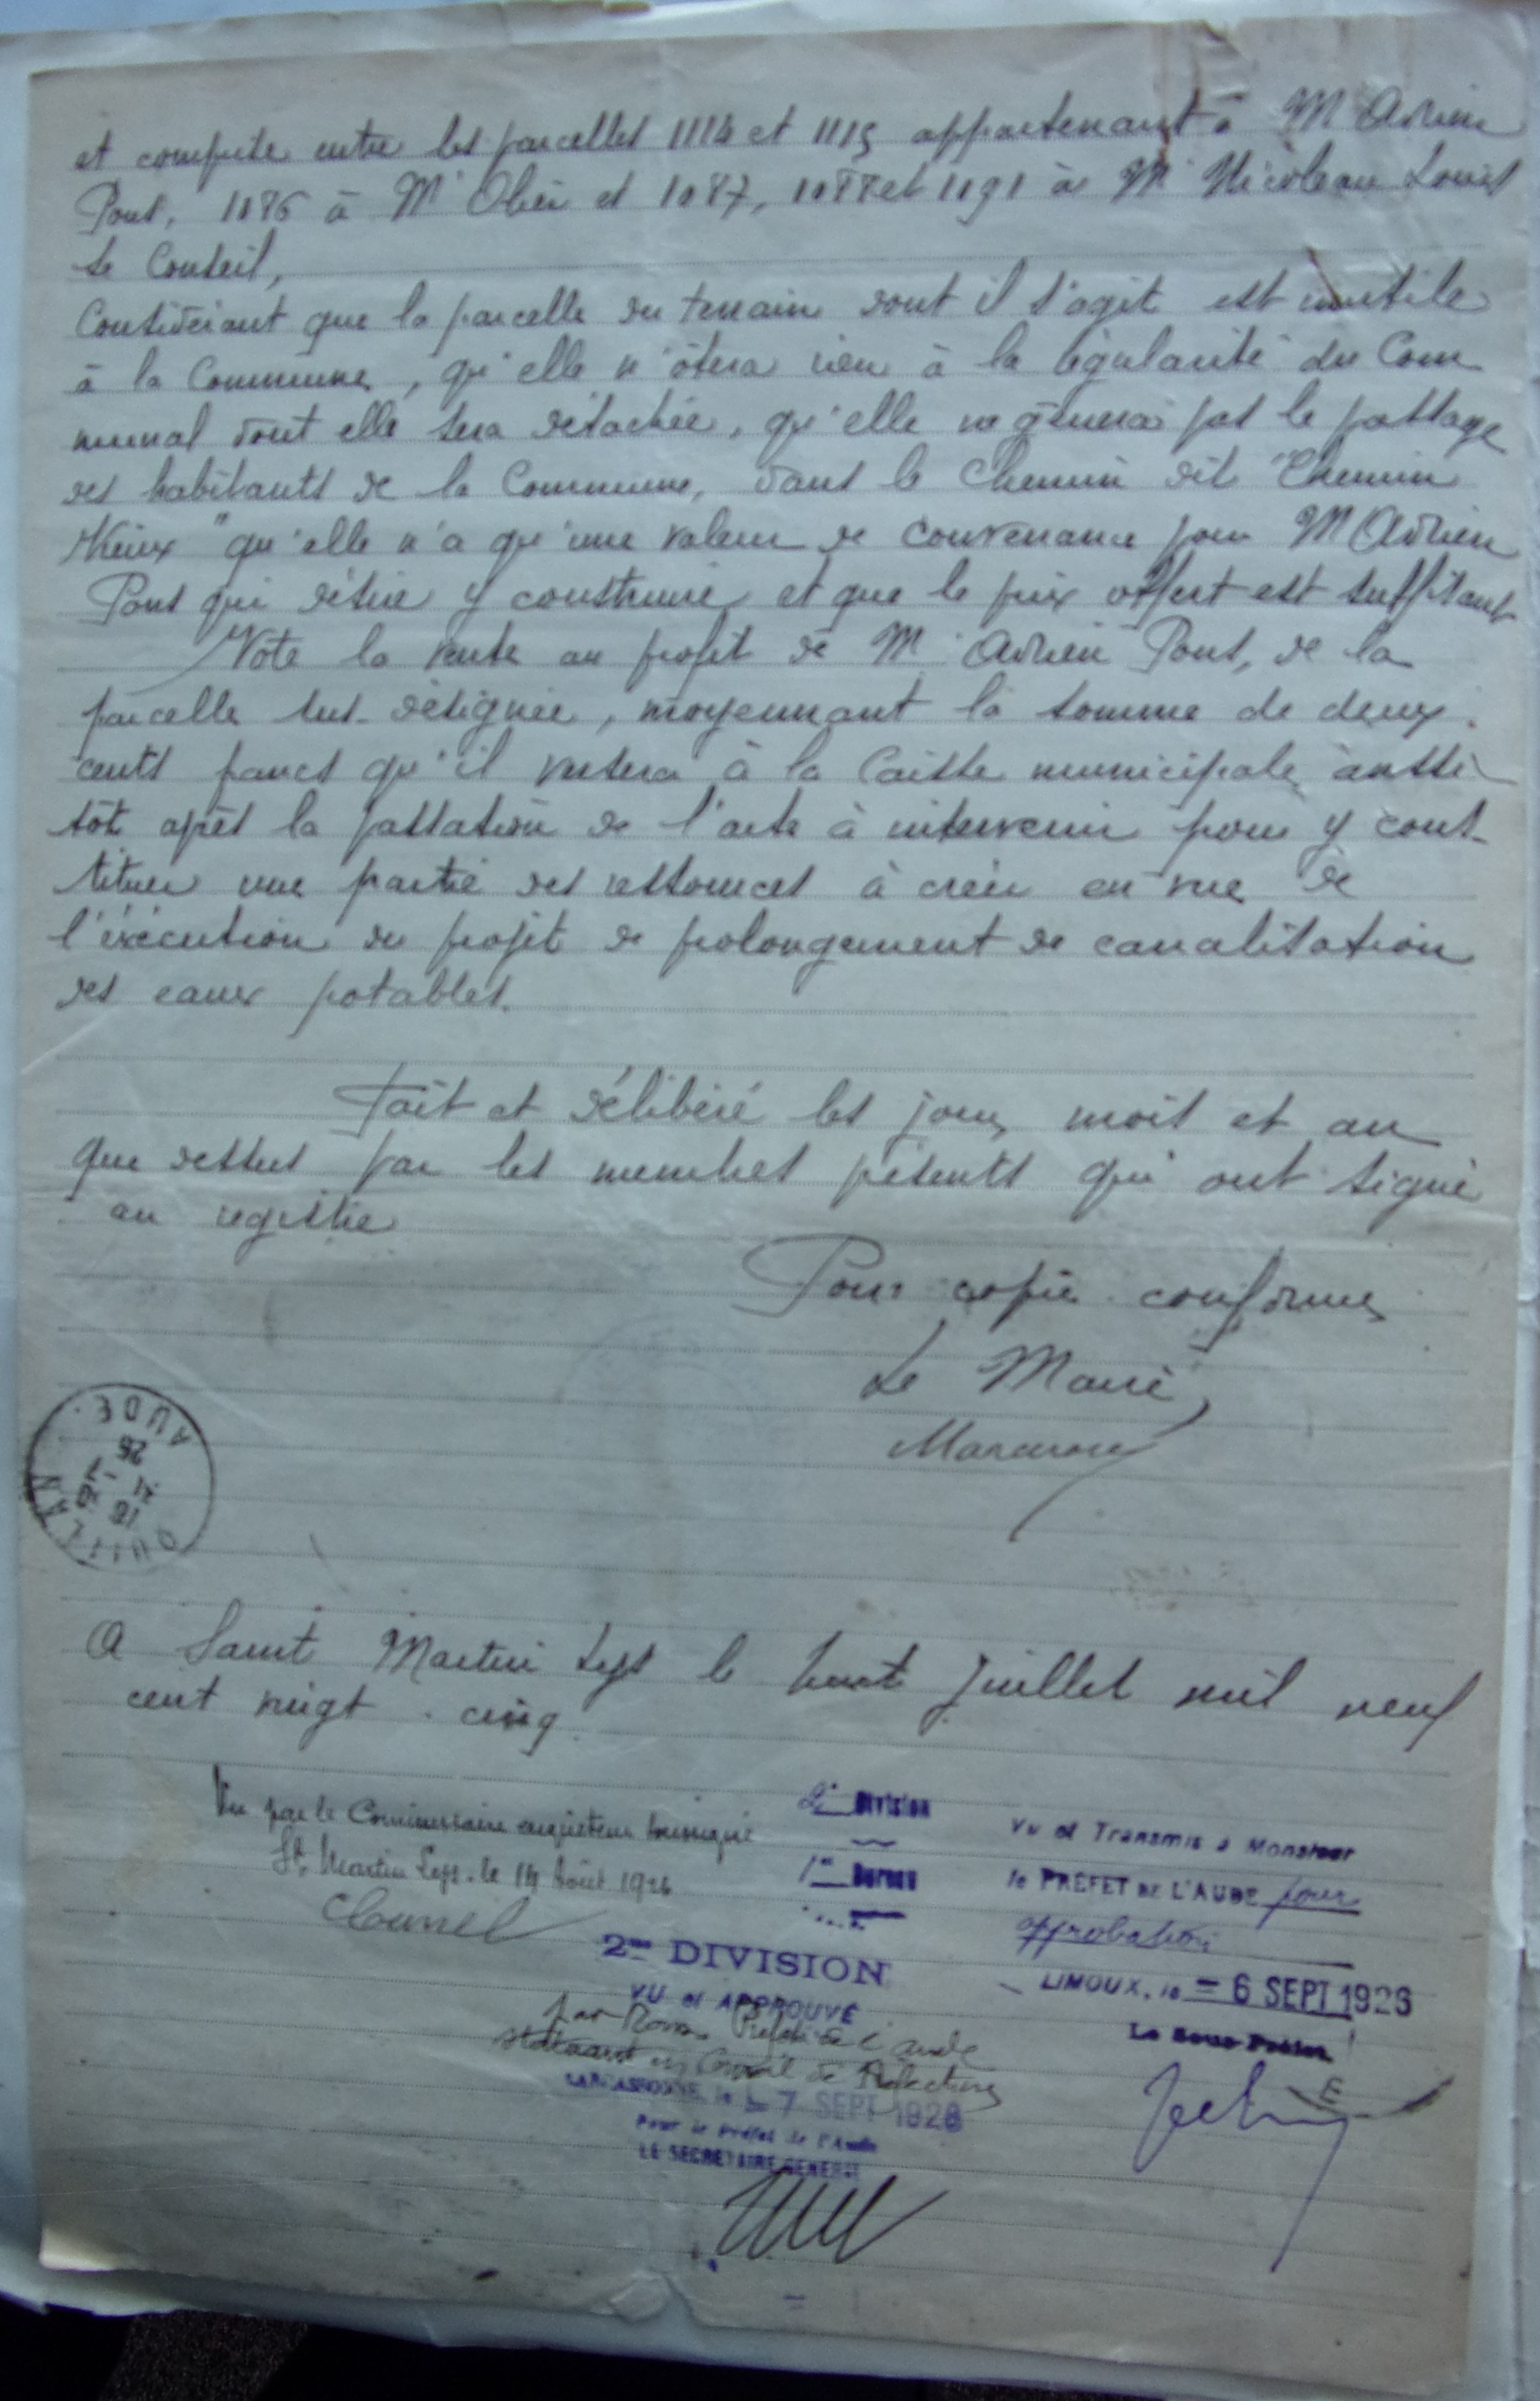 et comprise entre les parcelles 1114 et 1115 appartenant à M Adrien
Pont, 1186 à Mr Olier et 1087, 1088 et 1191 à Mr Nicoleau Louis
Le Conseil,
Considérant que la parcelle du terrain dont il s'agit est inutile
à la Commune, qu'elle n'ôtera rien à la régularité du Com
munal dont elle sera détachée, qu'elle ne gênera pas le passage
des habitants de la Commune, dans le chemin dit "Chemin
Vieux" qu'elle n'a qu'une valeur de convenance pour M Adrien
Pont qui désire y construire et que le prix offert est suffisant
Vote la vente au profit de Mr Adrien Pont, de la
parcelle sus-désignée, moyennant la somme de deux
cents francs qu'il versera à la Caisse municipale aussi
tôt après la passation de l'acte à intervenir pour y cons-
tituer une partie des ressources à créer en vue de
l'exécution du projet de prolongement de canalisation
des eaux potables.
Fait et délibéré les jour, mois et an
que dessus par les membres présents qui ont signé
au registre
Pour copie conforme
Le Maire,
QUILLAN
AUDE
A Saint Martin Lys le huit Juillet mil neuf
cent vingt-cinq
Vu par le Commissaire enquêteur soussigné
St Martin Lys, le 14 Août 1926
2e Division
1er Bureau
Vu et Transmis à Monsieur
le PREFET DE L'AUDE pour
approbation
LIMOUX, le = 6 SEPT 1926
Le Sous-Préfet
2me DIVISION
VU et APPROUVÉ
par Nous Préfet de l'Aude
statuant en Conseil de Préfecture
CARCASSONNE, le 7 SEPT 1926
Pour le Préfet de l'Aude
LE SECRETAIRE GENERAL